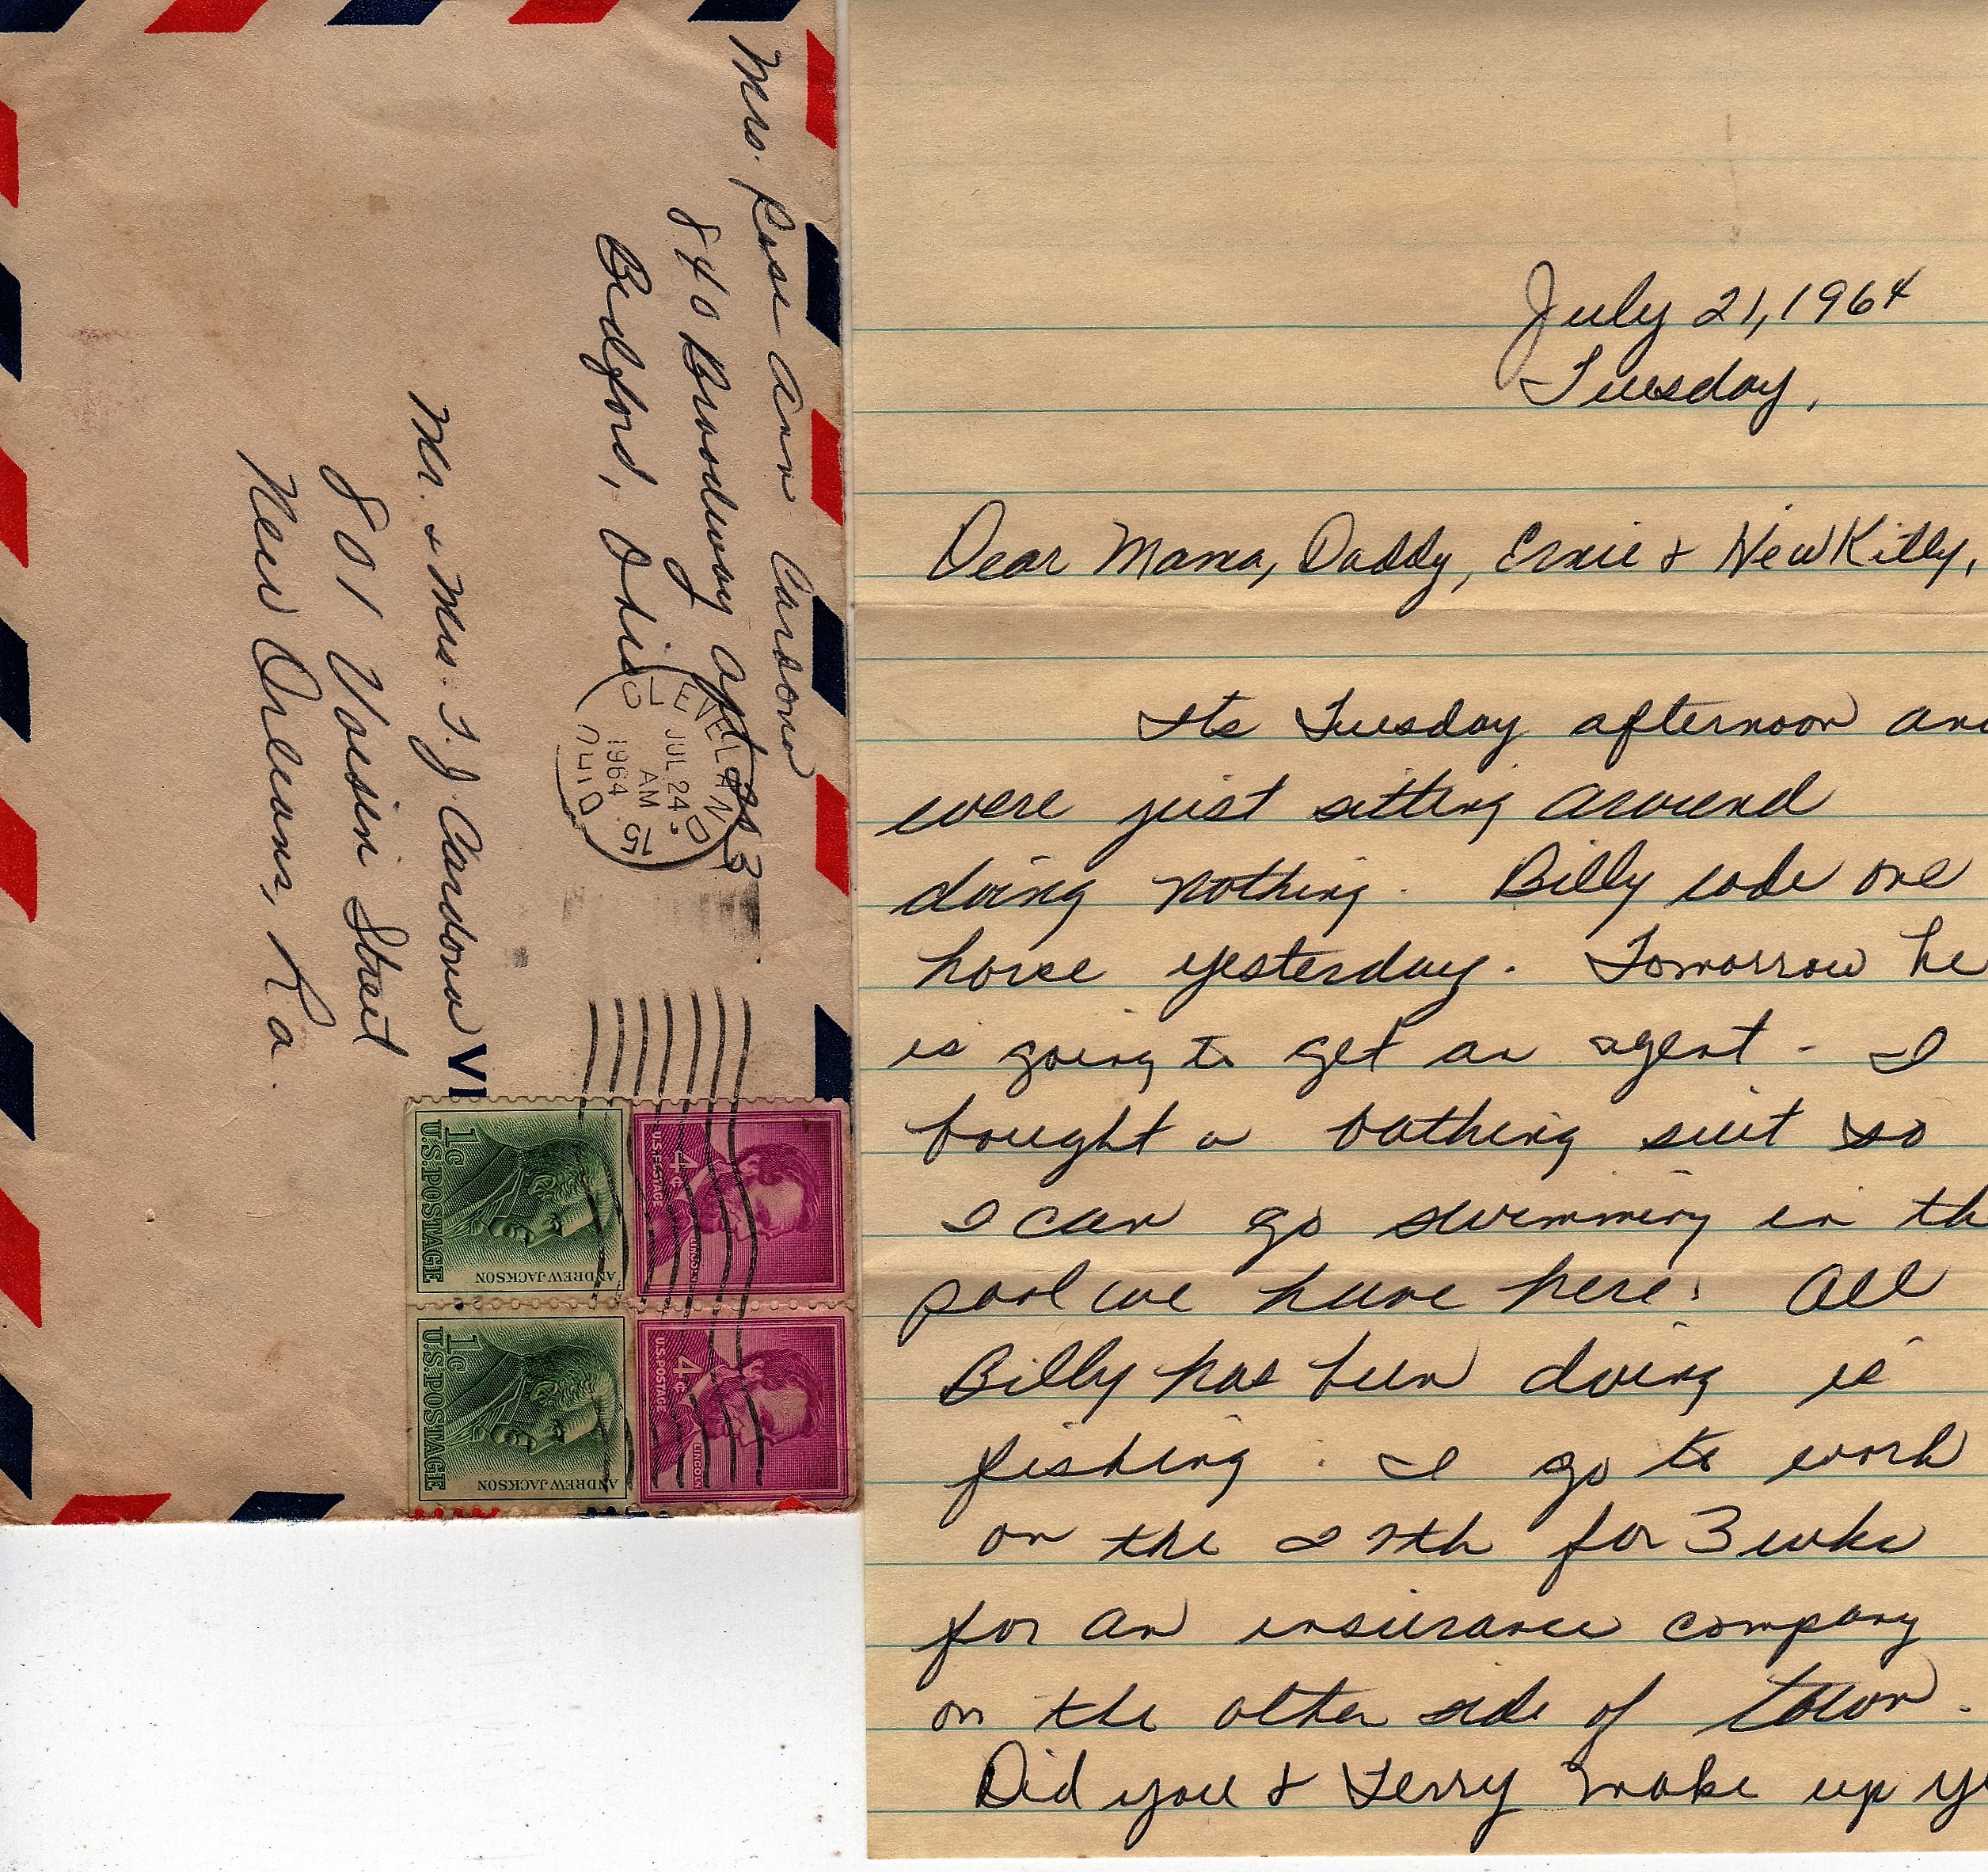 Mrs. Rose Ann Cardona
840 Broadway apt. 3
Bedford, Ohio
CLEVELAND
JUL 24
AM
1964
OHIO
15
Mr. & Mrs. T. J. Cardona
801 Voisin Street
New Orleans, La.
VI
4¢
U.S. POSTAGE
LINCOLN
4¢
U.S. POSTAGE
LINCOLN
1¢
U.S. POSTAGE
ANDREW JACKSON
1¢
U.S. POSTAGE
ANDREW JACKSON
July 21, 1964
Tuesday,
Dear Mama, Daddy, Ernie & New Kitty,
Its Tuesday afternoon and
were just sitting around
doing nothing. Billy rode one
horse yesterday. Tomorrow he
is going to get an agent - I
bought a bathing suit so
I can go swimming in th
pool we have here. All
Billy has been doing is
fishing. I go to work
on the 27th for 3 wks
for an insurance company
on the other side of town.
Did you & Terry make up y